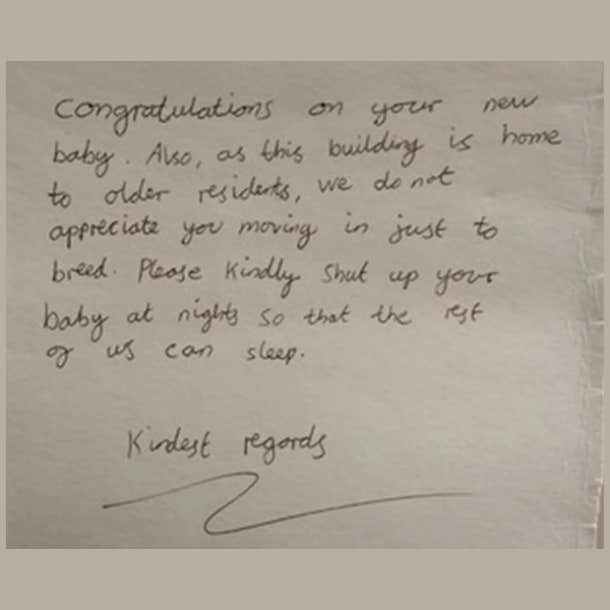 Congratulations on your new
baby. Also, as this building is home
to older residents, we do not
appreciate you moving in just to
breed. Please Kindly Shut up your
baby at nights so that the rest
of us can sleep.
Kindest regards